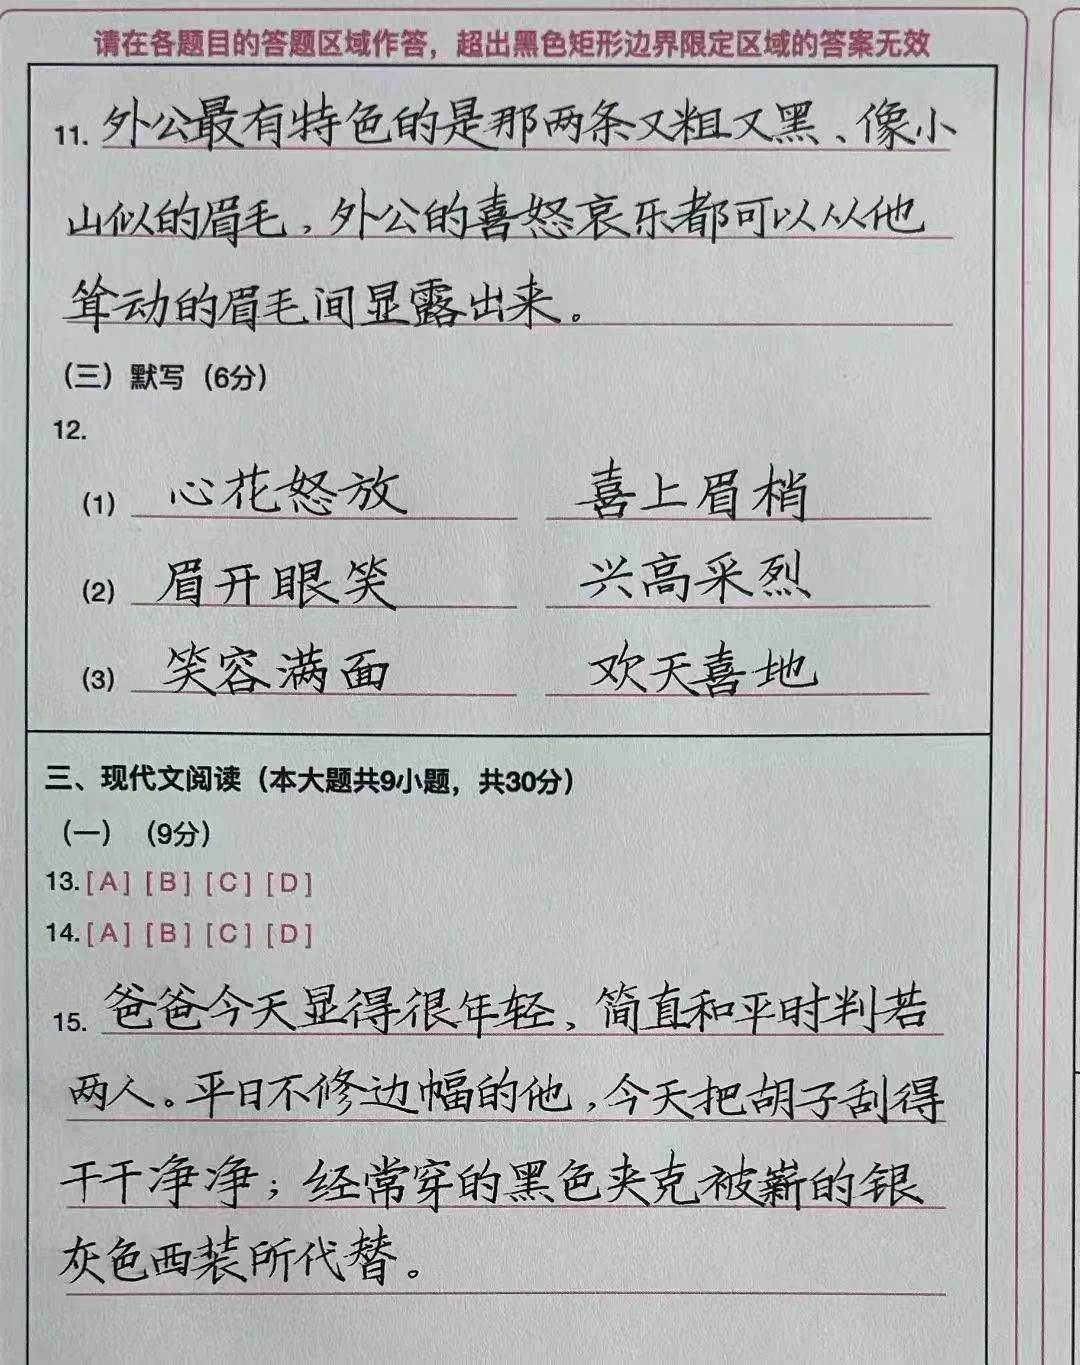 请在各题目的答题区域作答，超出黑色矩形边界限定区域的答案无效
11. 外公最有特色的是那两条又粗又黑、像小
山似的眉毛，外公的喜怒哀乐都可以从他
耸动的眉毛间显露出来。
（三）默写（6分）
12.
(1) 心花怒放 喜上眉梢
(2) 眉开眼笑 兴高采烈
(3) 笑容满面 欢天喜地
三、现代文阅读（本大题共9小题，共30分）
（一）（9分）
13. [A] [B] [C] [D]
14. [A] [B] [C] [D]
15. 爸爸今天显得很年轻，简直和平时判若
两人。平日不修边幅的他，今天把胡子刮得
干干净净；经常穿的黑色夹克被崭的银
灰色西装所代替。